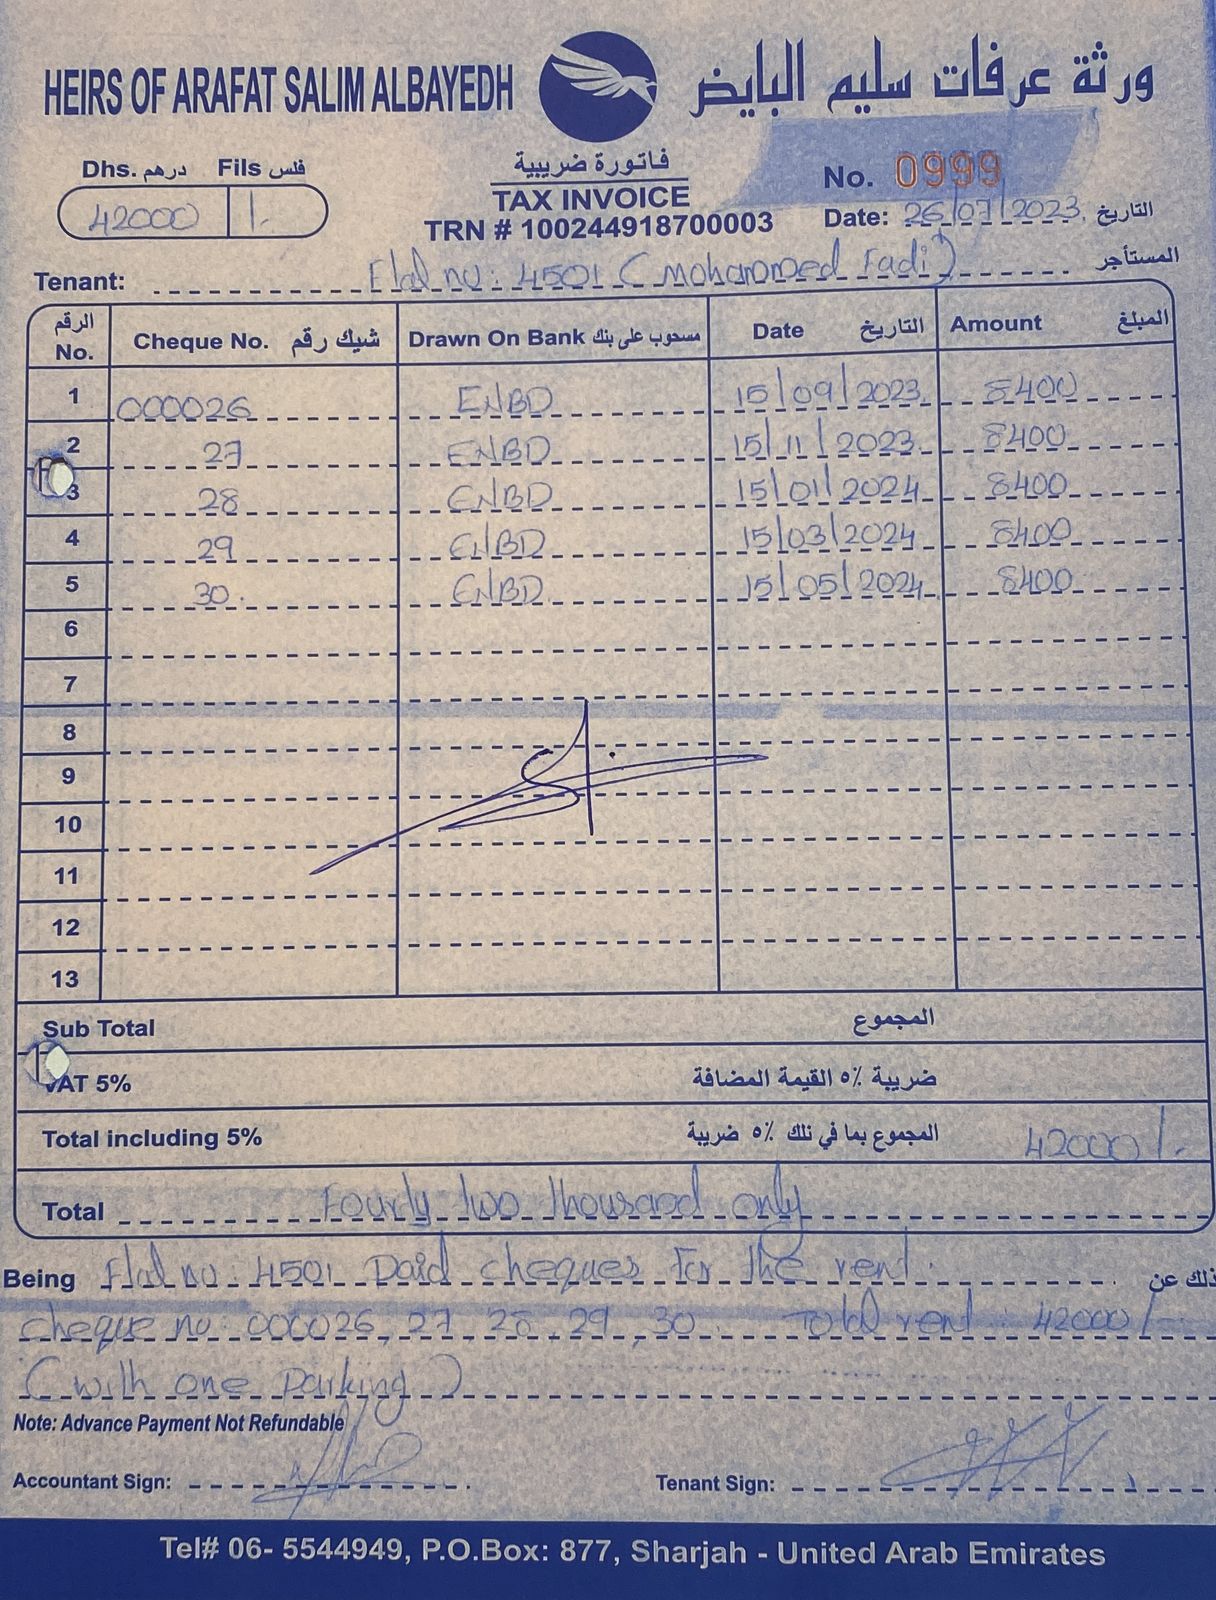 HEIRS OF ARAFAT SALIM ALBAYEDH ورثة عرفات سليم البايض
Dhs. درهم Fils فلس
42000 /.
فاتورة ضريبية
TAX INVOICE
TRN # 100244918700003
No. 0999
Date: 26/07/2023 التاريخ
Tenant: Flat no: 4501 (Mohammed Fadi) المستأجر
الرقم No. Cheque No. شيك رقم Drawn On Bank مسحوب على بنك Date التاريخ Amount المبلغ
1 000026 ENBD 15/09/2023 8400
2 27 ENBD 15/11/2023 8400
3 28 ENBD 15/01/2024 8400
4 29 ENBD 15/03/2024 8400
5 30. ENBD 15/05/2024 8400
6
7
8
9
10
11
12
13
Sub Total المجموع
VAT 5% ضريبة ٥٪ القيمة المضافة
Total including 5% المجموع بما في تلك ٥٪ ضريبة 42000/.
Total Fourty two thousand only
Being Flat no 4501 Paid cheques for the rent. ذلك عن
cheque no: 000026, 27, 28, 29, 30. Total rent: 42000/-
(with one parking)
Note: Advance Payment Not Refundable
Accountant Sign: Tenant Sign:
Tel# 06- 5544949, P.O.Box: 877, Sharjah - United Arab Emirates